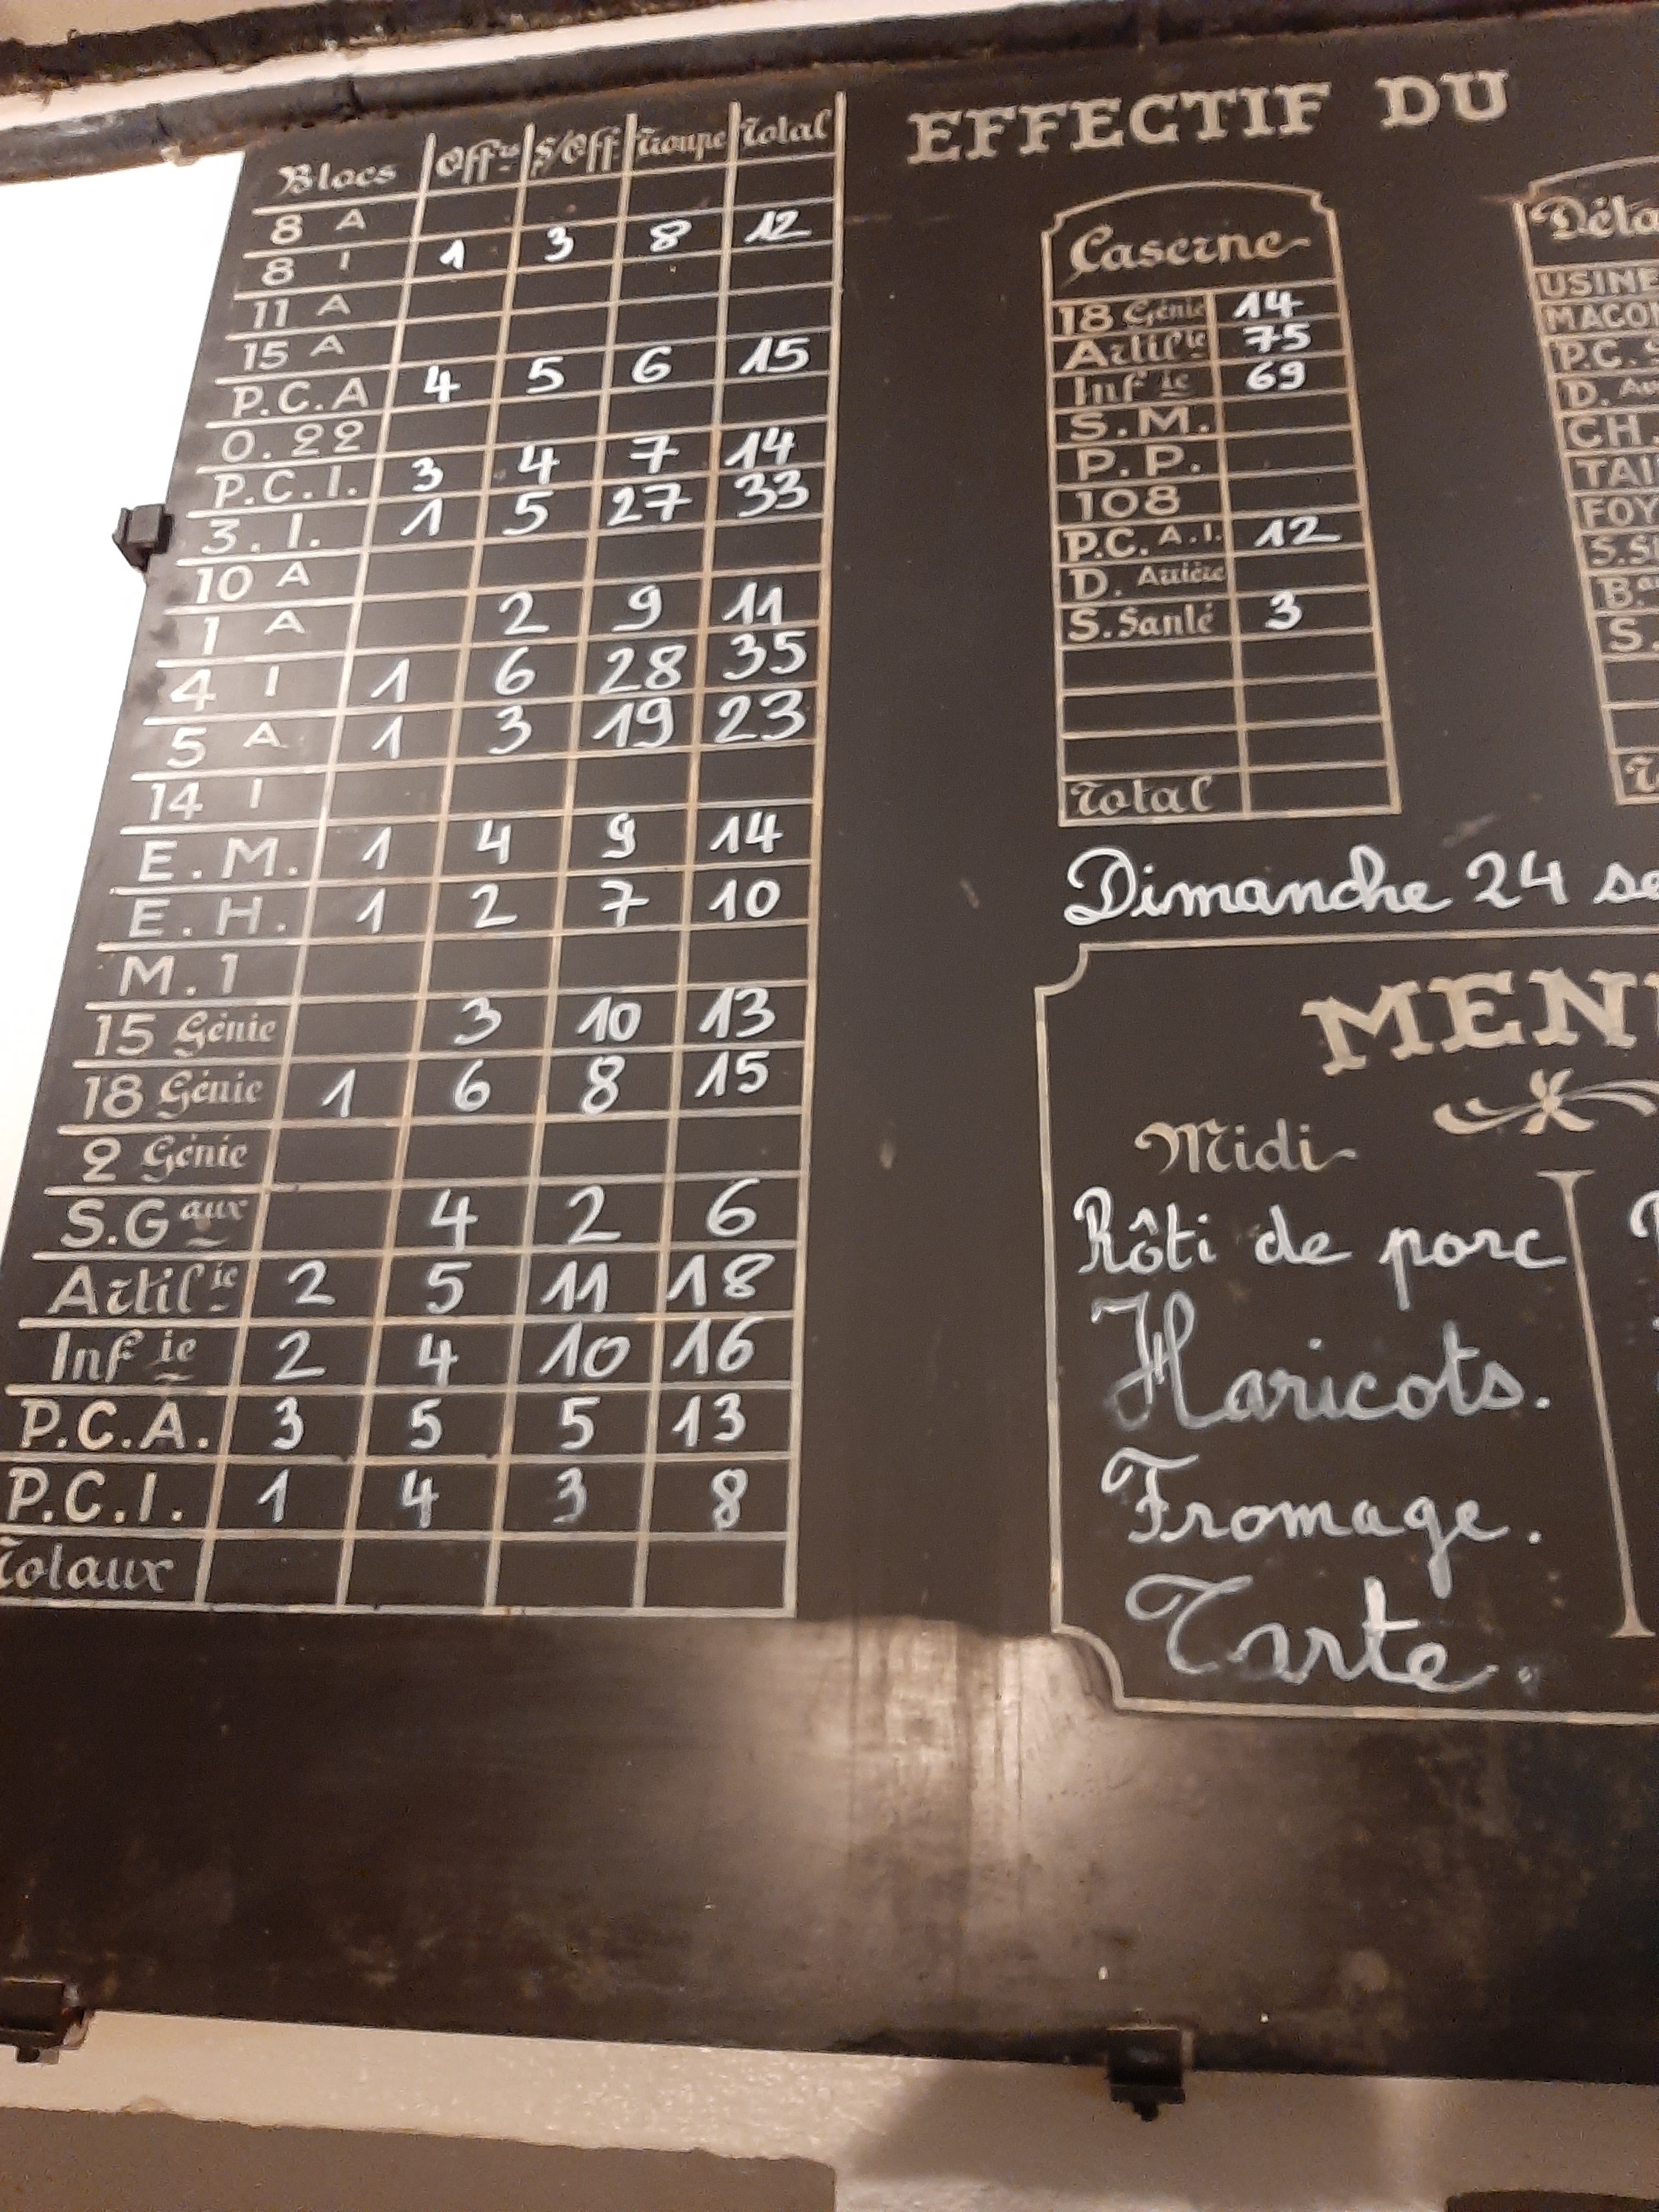 EFFECTIF DU
Blocs Offrs S/Off Troupe Total
8 A
8 I 1 3 8 12
11 A
15 A
P.C.A 4 5 6 15
O.22
P.C.I. 3 4 7 14
3.I. 1 5 27 33
10 A
1 A 2 9 11
4 I 1 6 28 35
5 A 1 3 19 23
14 I
E.M. 1 4 9 14
E.H. 1 2 7 10
M.1
15 Génie 3 10 13
18 Génie 1 6 8 15
2 Génie
S.Gaux 4 2 6
Artilie 2 5 11 18
Infie 2 4 10 16
P.C.A. 3 5 5 13
P.C.I. 1 4 3 8
Totaux
Caserne
18 Génie 14
Artilie 75
Infie 69
S.M.
P.P.
108
P.C.A.I. 12
D. Arrière
S.Santé 3
Total
Déta
USINE
MAÇON
P.C.
D. Ar
CH.
TAI
FOY
S.S
B.
S.
Dimanche 24 se
MEN
Midi
Rôti de porc
Haricots.
Fromage.
Tarte.